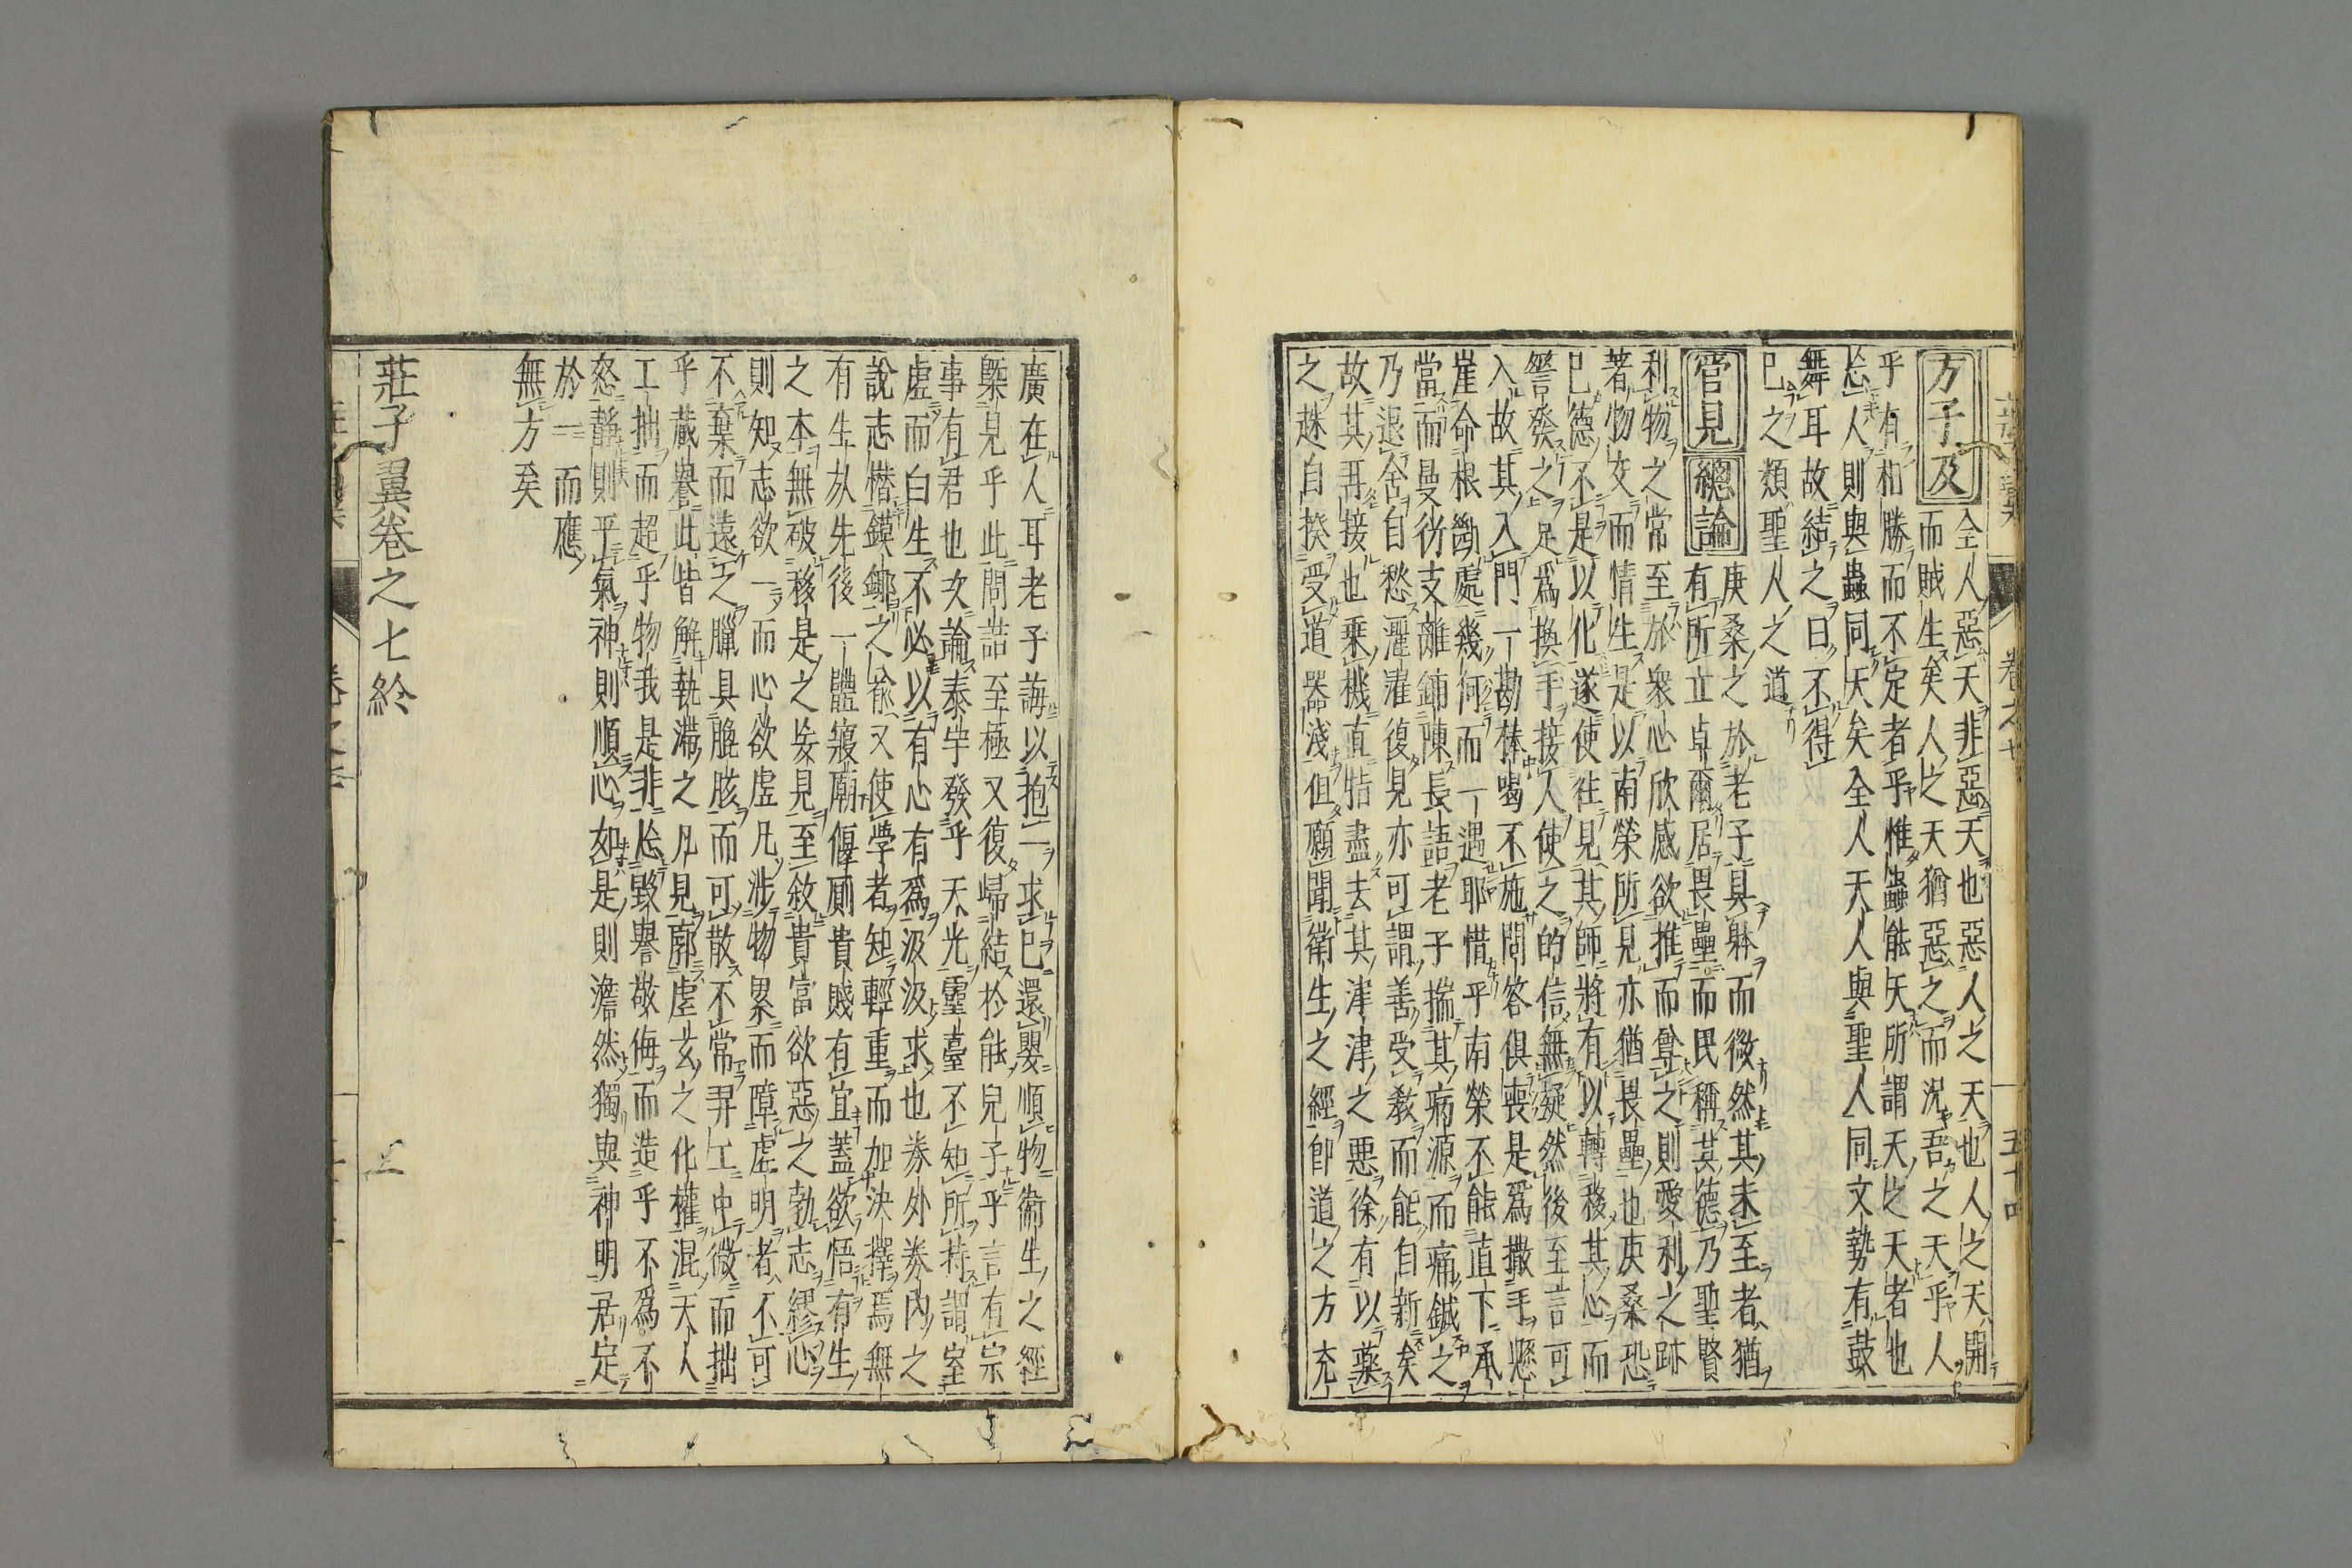 方子及
全人惡天非惡天也惡人之天也人之天開
而賊生矣人之天猶惡之而況吾之天乎人
乎有和勝而不定者乎惟蟲能天所謂天之天者也
忘人則與蟲同天矣全人天人與聖人同文勢有鼓
舞耳故結之曰不得
已之類聖人之道
管見總論
庚桑之於老子具躰而微然其未至者猶
有所立卓爾居畏壘而民稱其德乃聖賢
利物之常至於衆心欣感欲推而尊之則愛利之跡
著物交而情生是以南榮所見亦猶畏壘也庚桑恐
已德不足以化遂使往見其師將有以轉移其心而
啓發之足爲換手接人使之的信無疑然後至言可
入故其入門一勘棒喝不施問答俱喪是爲撒手懸
崖命根斷處幾何而一遇耶惜乎南榮不能直下承
當而曼衍支離鋪陳長語老子揣其病源而痛鍼之
乃退舍自愁灑濯復見亦可謂善受教而能自新矣
故其再接也乘機直諎盡去其津津之惡徐有以藥
之趎自揆受道器淺但願聞衛生之經即道之方充
廣在人耳老子誨以抱一求已還嬰順物衞生之經
槩見乎此問詰至極又復歸結於能兒子乎言有宗
事有君也次論泰宇發乎天光靈臺不知所持謂室
虛而白生不必以有心有爲汲汲求也券外券內之
說志憯鏌鎁之喻又使學者知輕重而加決擇焉無
有生𣦸先後一體寢廟偃厠貴賤有宜蓋欲悟有生
之本無破移是之妄見至敘貴富欲惡之勃志繆心
則知志欲一而心欲虛凡涉物累而障虛明者不可
不棄而遠之臘具膍胲而可散不常羿工中微而拙
乎藏譽此皆解執滯之凡見廓虛玄之化權混天人
工拙而超乎物我是非忘毀譽敬侮而造乎不爲不
怒靜則平氣神則順心如是則澹然獨與神明君定
於一而應
無方矣
莊子翼卷之七終